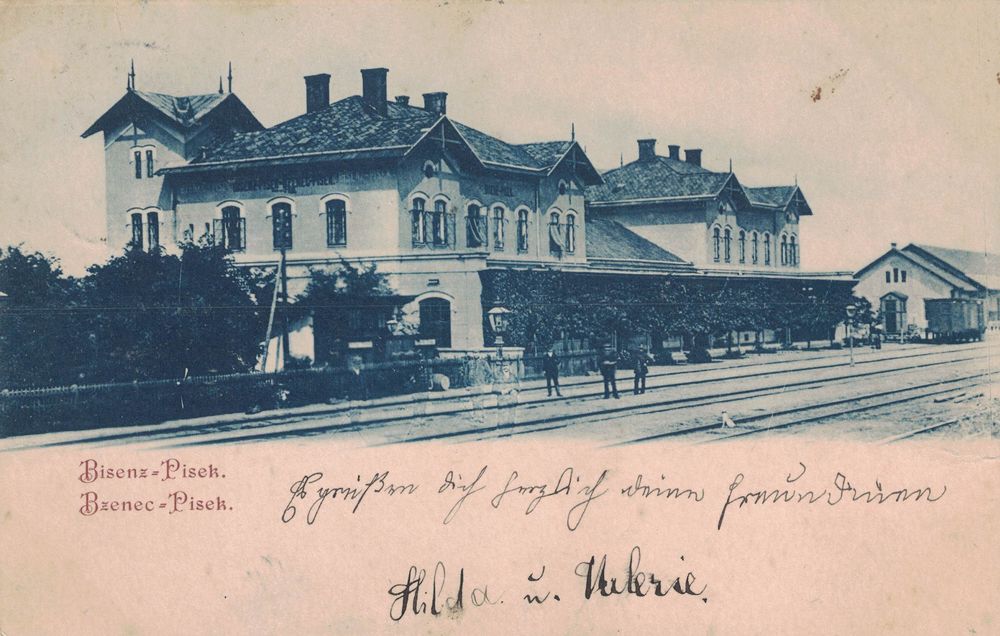 Bisenz-Pisek.
Bzenec-Pisek.
Es grüßen dich herzlich deine Freundinnen
Hilda u. Valerie.